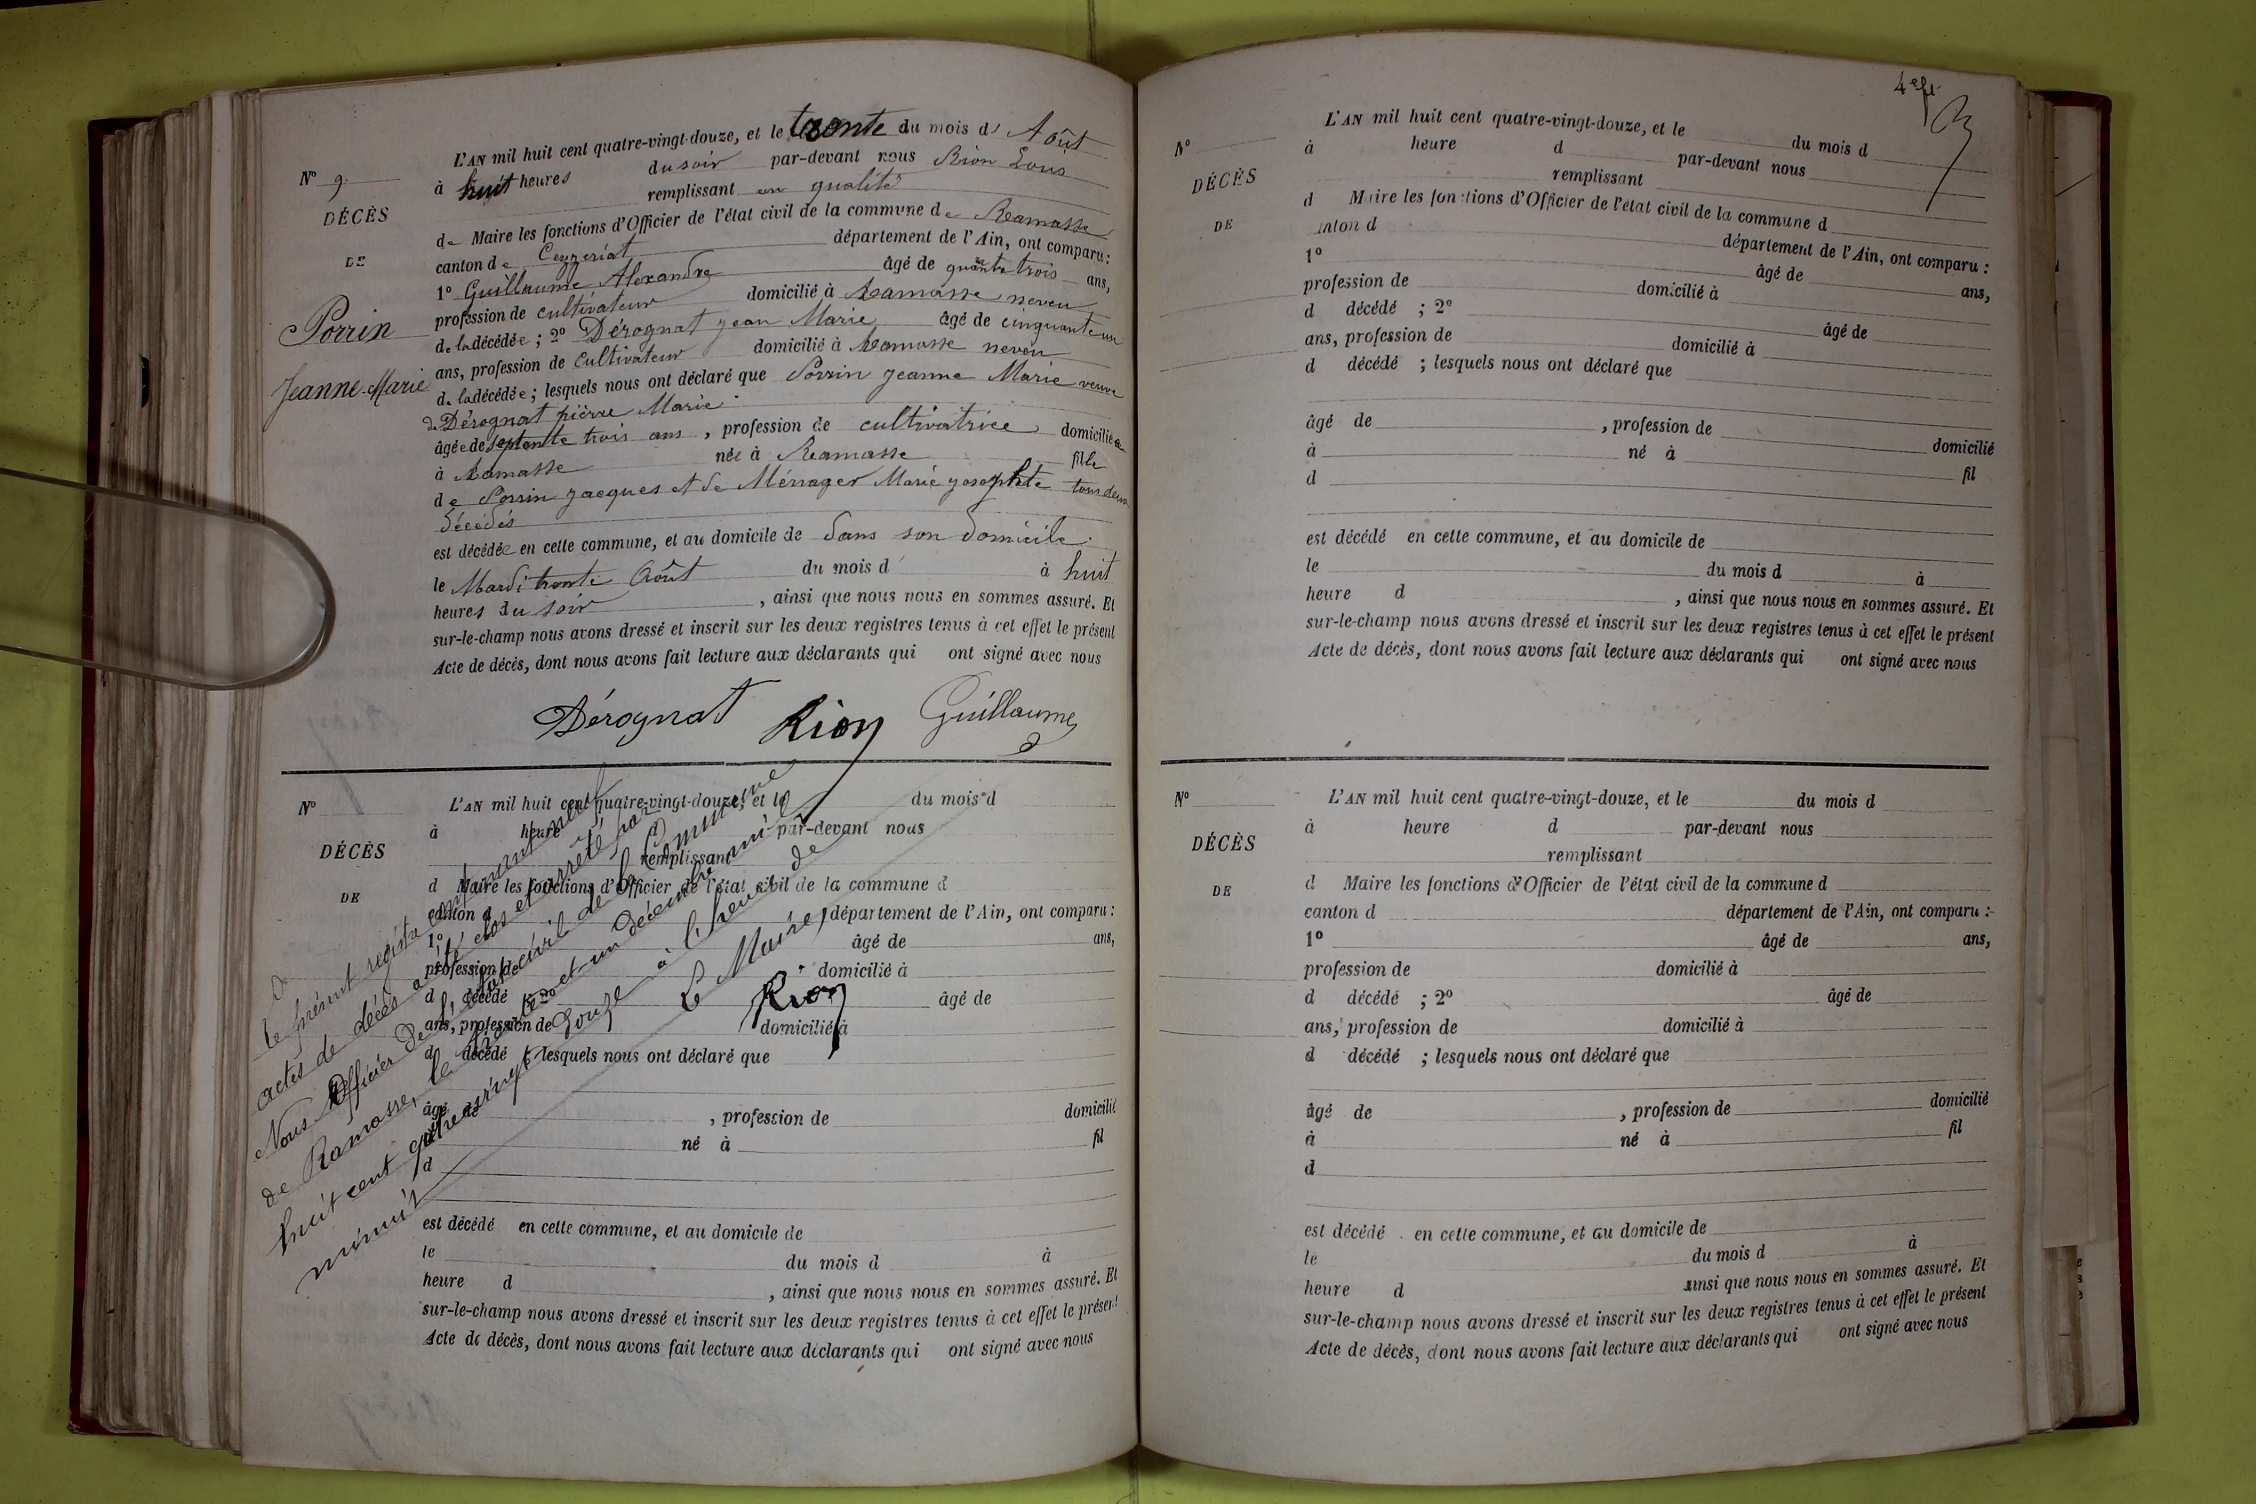 N° 9.
DÉCÈS
DE
Porrin
Jeanne-Marie
L'AN mil huit cent quatre-vingt-douze, et le trente du mois d' Août
à huit heures du soir par-devant nous Rion Louis
remplissant en qualité
de Maire les fonctions d'Officier de l'état civil de la commune de Ramasse
canton de Ceyzériat département de l'Ain, ont comparu :
1° Guillaume Alexandre âgé de quarante trois ans,
profession de cultivateur domicilié à Ramasse neveu
de la décédée ; 2° Dérognat jean Marie âgé de cinquante un
ans, profession de cultivateur domicilié à Ramasse neveu
de la décédée ; lesquels nous ont déclaré que Porrin jeanne Marie veuve
de Dérognat pièrre Marie
âgée de septente trois ans, profession de cultivatrice domiciliée
à Ramasse née à Ramasse fille
de Porrin jacques et de Ménager Marie josephte tous deux
décédés
est décédée en cette commune, et au domicile de dans son domicile.
le Mardi trente Août du mois d à huit
heures du soir, ainsi que nous nous en sommes assuré. Et
sur-le-champ nous avons dressé et inscrit sur les deux registres tenus à cet effet le présent
Acte de décès, dont nous avons fait lecture aux déclarants qui ont signé avec nous
Dérognat Rion Guillaume
N°
DÉCÈS
DE
L'AN mil huit cent quatre-vingt-douze, et le du mois d
à heure d par-devant nous
remplissant
d Maire les fonctions d'Officier de l'état civil de la commune d
canton d département de l'Ain, ont comparu :
1° âgé de ans,
profession de domicilié à
d décédé ; 2° âgé de
ans, profession de domicilié à
d décédé ; lesquels nous ont déclaré que
âgé de , profession de domicilié
à né à fil
d
est décédé en cette commune, et au domicile de
le du mois d à
heure d , ainsi que nous nous en sommes assuré. Et
sur-le-champ nous avons dressé et inscrit sur les deux registres tenus à cet effet le présent
Acte de décès, dont nous avons fait lecture aux déclarants qui ont signé avec nous
Le présent registre contenant neuf
actes de décès a été clos et arrêté par
Nous Officier de l'état civil de la Commune
de Ramasse, le trente et un décembre mil
huit cent quatre vingt douze à l'heure de
minuit Le Maire,
Rion
4e f.
N°
DÉCÈS
DE
L'AN mil huit cent quatre-vingt-douze, et le du mois d
à heure d par-devant nous
remplissant
d Maire les fonctions d'Officier de l'état civil de la commune d
canton d département de l'Ain, ont comparu :
1° âgé de ans,
profession de domicilié à
d décédé ; 2° âgé de
ans, profession de domicilié à
d décédé ; lesquels nous ont déclaré que
âgé de , profession de domicilié
à né à
d fil
est décédé en cette commune, et au domicile de
le du mois d à
heure d , ainsi que nous nous en sommes assuré. Et
sur-le-champ nous avons dressé et inscrit sur les deux registres tenus à cet effet le présent
Acte de décès, dont nous avons fait lecture aux déclarants qui ont signé avec nous
N°
DÉCÈS
DE
L'AN mil huit cent quatre-vingt-douze, et le du mois d
à heure d par-devant nous
remplissant
d Maire les fonctions d'Officier de l'état civil de la commune d
canton d département de l'Ain, ont comparu :
1° âgé de ans,
profession de domicilié à
d décédé ; 2° âgé de
ans, profession de domicilié à
d décédé ; lesquels nous ont déclaré que
âgé de , profession de domicilié
à né à fil
d
est décédé en cette commune, et au domicile de
le du mois d à
heure d ainsi que nous nous en sommes assuré. Et
sur-le-champ nous avons dressé et inscrit sur les deux registres tenus à cet effet le présent
Acte de décès, dont nous avons fait lecture aux déclarants qui ont signé avec nous